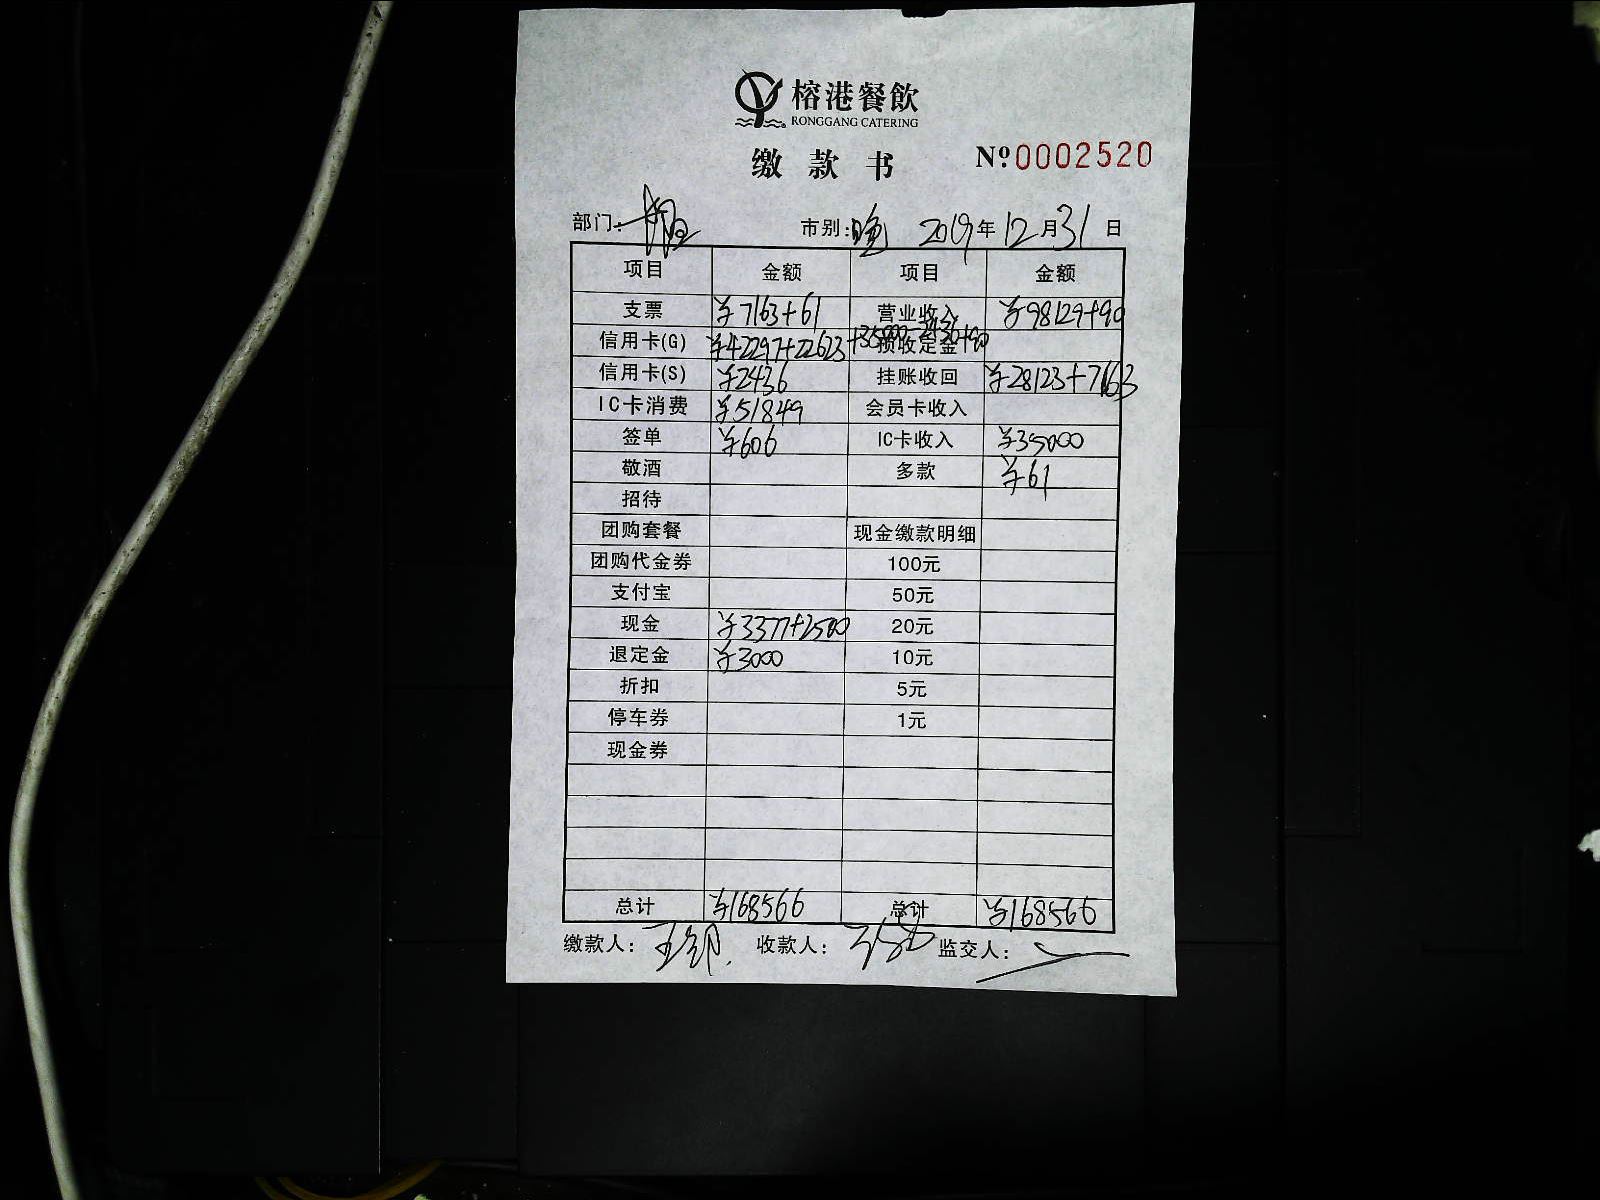 榕港餐飲
RONGGANG CATERING
缴款书 №0002520
部门: 市别:晚 2019年12月31日
项目 金额 项目 金额
支票 ¥7163+61 营业收入 ¥98129+90
信用卡(G) ¥42297+22623+35000-2436+90 预收定金
信用卡(S) ¥2436 挂账收回 ¥28123+7163
IC卡消费 ¥51849 会员卡收入
签单 ¥606 IC卡收入 ¥35000
敬酒 多款 ¥61
招待
团购套餐 现金缴款明细
团购代金券 100元
支付宝 50元
现金 ¥3377+2500 20元
退定金 ¥3000 10元
折扣 5元
停车券 1元
现金券
总计 ¥168566 总计 ¥168566
缴款人: 收款人: 监交人: